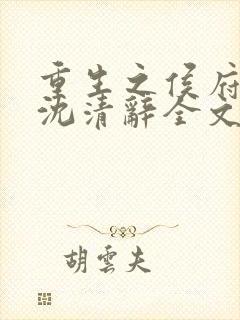 重生之侯府
沈清辭全文
胡雲夫